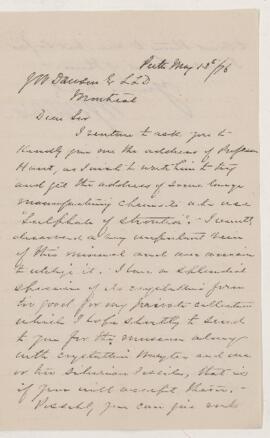 Perth May 12th /76
J W Dawson Esq LLD
Montreal
Dear Sir
I venture to ask you to
kindly give me the address of Professor
Hunt, as I wish to write him to try
and get the address of some large
manufacturing chemists who use
"Sulphate of Strontia". I recently
discovered a very important vein
of this mineral and am anxious
to utilize it. I have a splendid
specimen of its crystalline form
too good for my private collection
which I hope shortly to send
to you for the museum along
with crystalline and one
or two Silurian fossils, that is
if you will accept them. -
Possibly you can give me